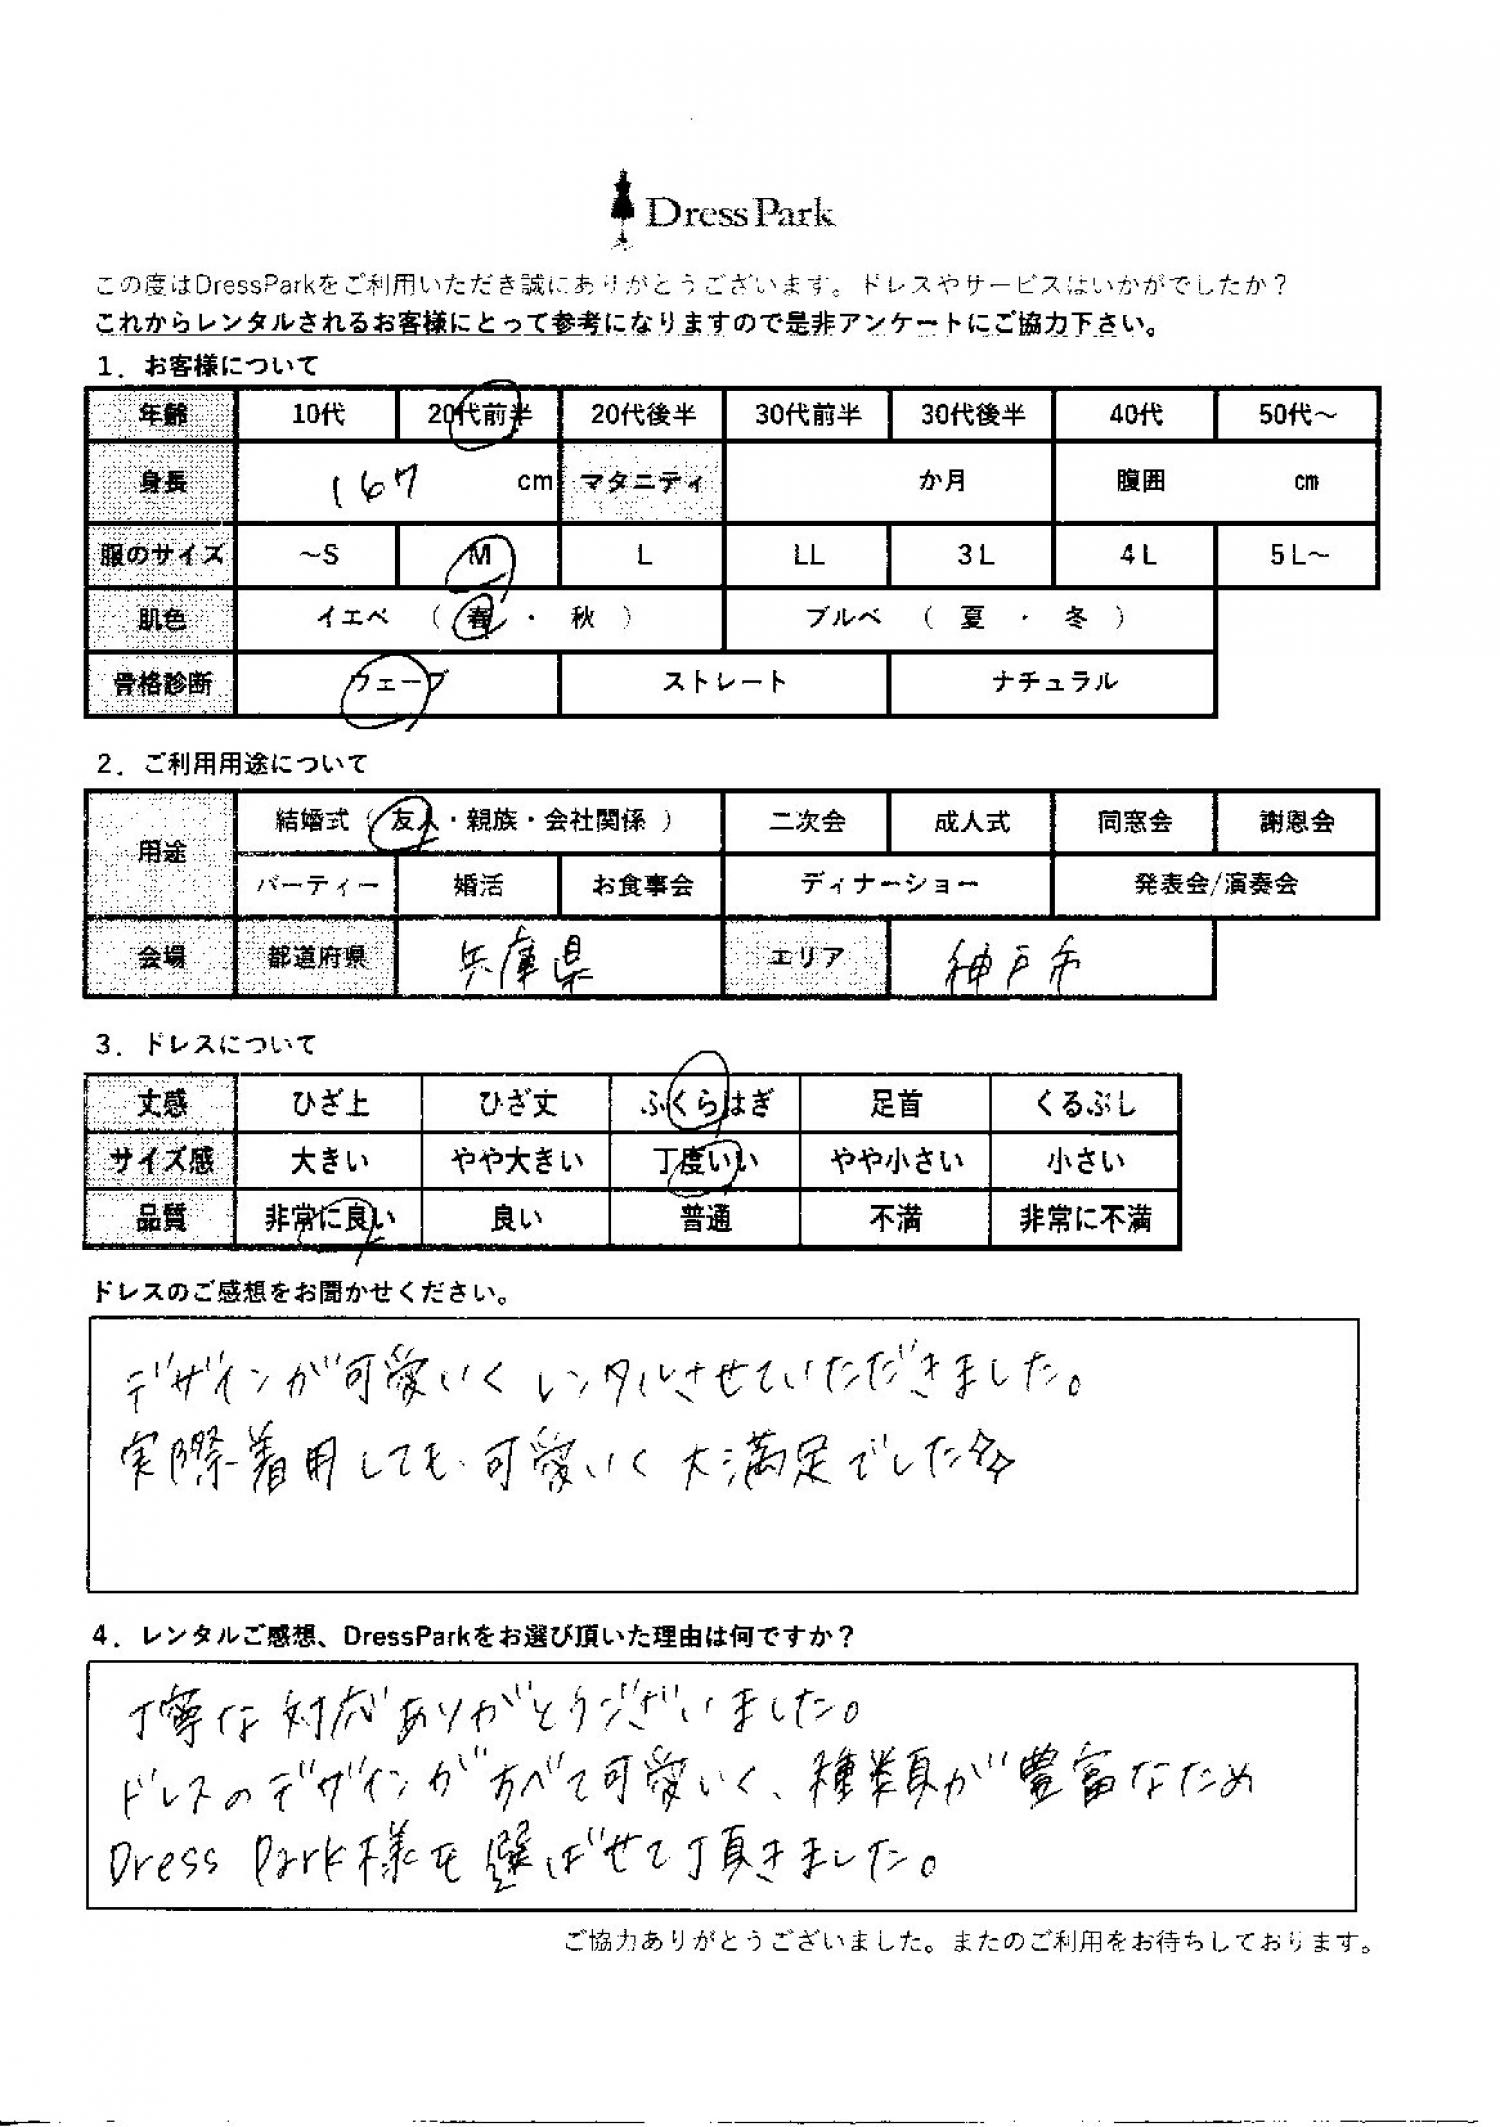 Dress Park
この度はDressParkをご利用いただき誠にありがとうございます。ドレスやサービスはいかがでしたか？
これからレンタルされるお客様にとって参考になりますので是非アンケートにご協力下さい。
1．お客様について
年齢 10代 20代前半 20代後半 30代前半 30代後半 40代 50代～
身長 167 cm マタニティ か月 腹囲 cm
服のサイズ ～S M L LL 3L 4L 5L～
肌色 イエベ （ 春 ・ 秋 ） ブルベ （ 夏 ・ 冬 ）
骨格診断 ウェーブ ストレート ナチュラル
2．ご利用用途について
用途 結婚式（ 友人・親族・会社関係 ） 二次会 成人式 同窓会 謝恩会
パーティー 婚活 お食事会 ディナーショー 発表会/演奏会
会場 都道府県 兵庫県 エリア 神戸市
3．ドレスについて
丈感 ひざ上 ひざ丈 ふくらはぎ 足首 くるぶし
サイズ感 大きい やや大きい 丁度いい やや小さい 小さい
品質 非常に良い 良い 普通 不満 非常に不満
ドレスのご感想をお聞かせください。
デザインが可愛いくレンタルさせていただきました。
実際着用しても可愛いく大満足でした☆☆
4．レンタルご感想、DressParkをお選び頂いた理由は何ですか？
丁寧な対応ありがとうございました。
ドレスのデザインがすべて可愛いく、種類が豊富なため
Dress Park様を選ばせて頂きました。
ご協力ありがとうございました。またのご利用をお待ちしております。